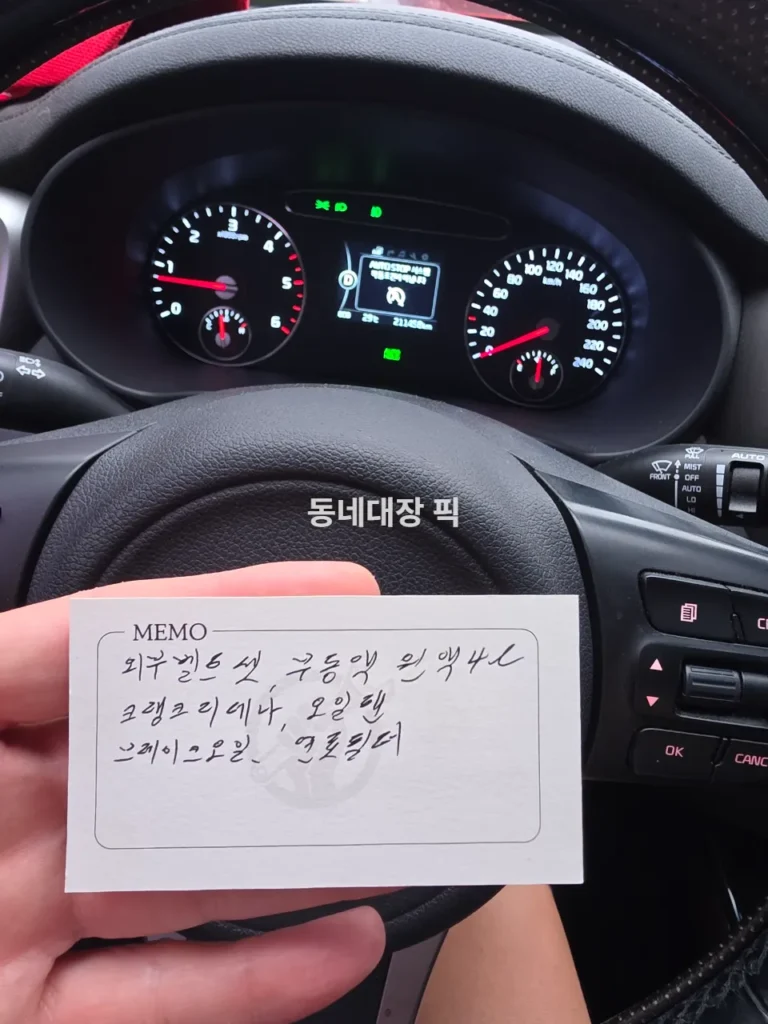 3
2
4
1
5
0
6
x1000rpm
AUTO STOP 시스템
D
29℃
211458km
100 120 140
80
km/h
160
60
180
40
200
20
220
0
240
PULL
MIST
AUTO
FRONT
OFF
AUTO
LO
HI
동네대장 픽
MEMO
외부벨트 셋, 부동액 원액 4L
크랭크리데나, 오일팬
브레이크오일, 연료필터
OK